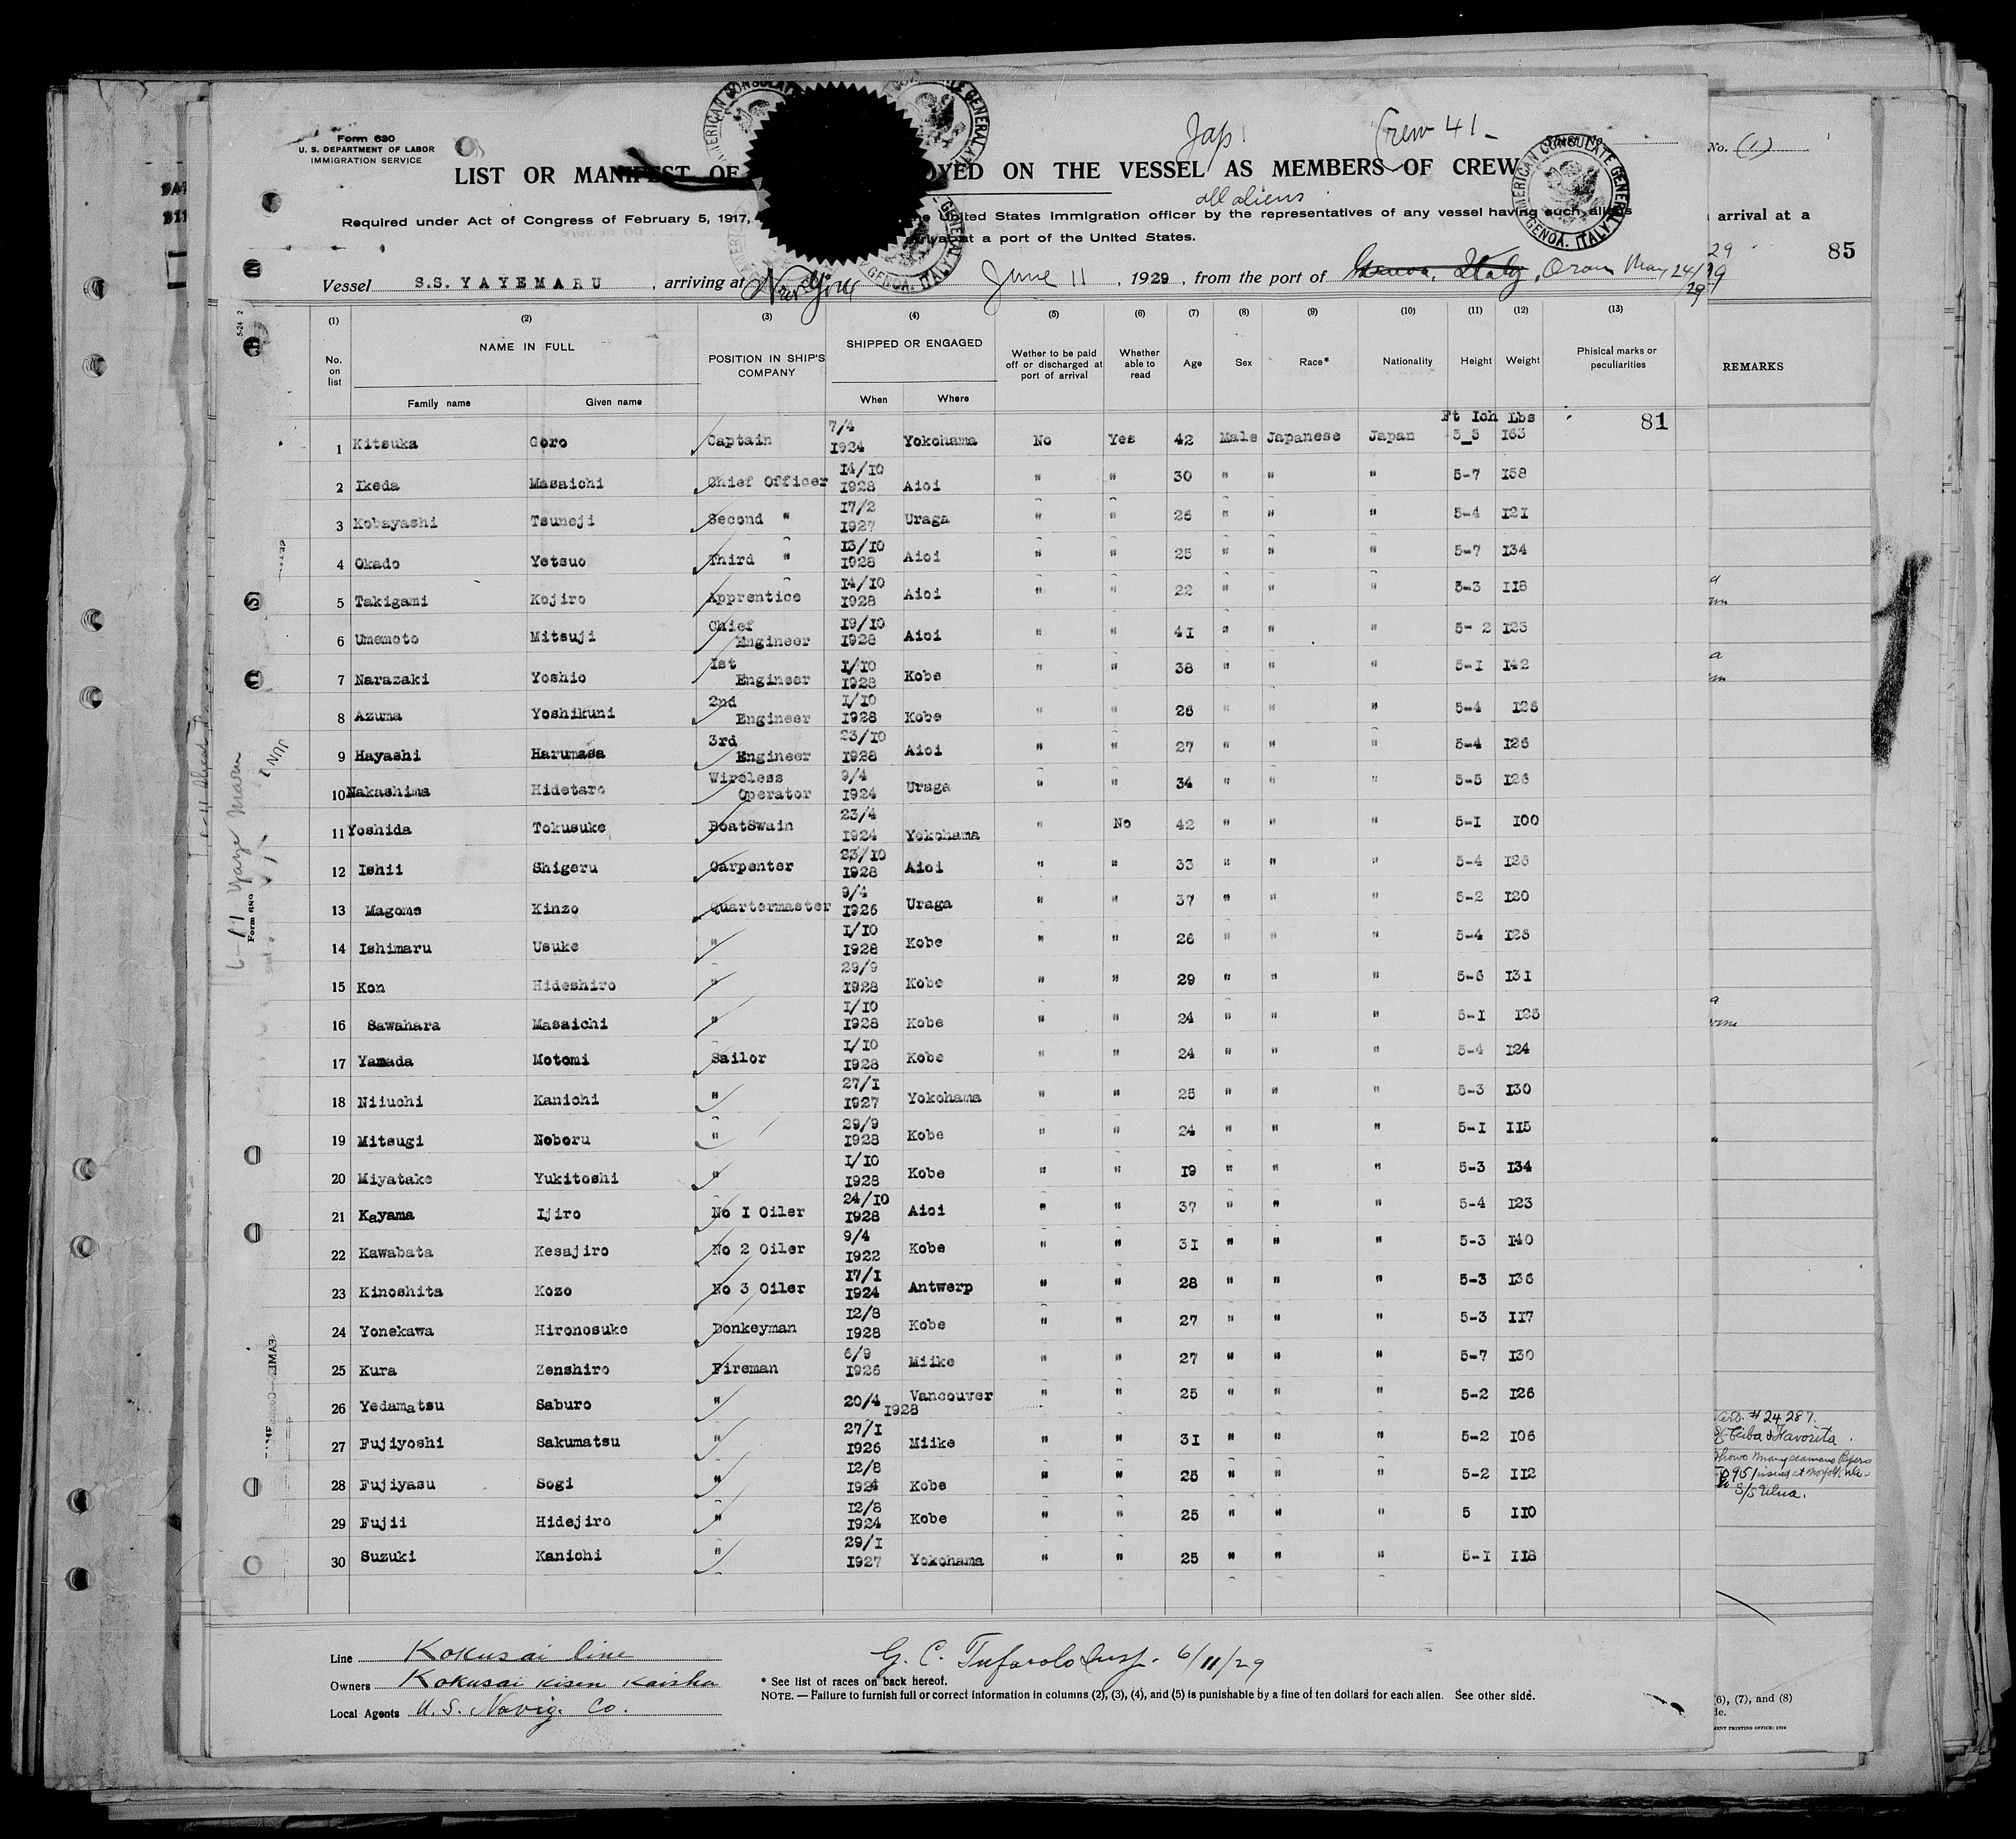 Form 630
U. S. DEPARTMENT OF LABOR
IMMIGRATION SERVICE
Jap
Crew 41
No. (1)
LIST OR MANIFEST OF OYED ON THE VESSEL AS MEMBERS OF CREW
all aliens
Required under Act of Congress of February 5, 1917, he United States Immigration officer by the representatives of any vessel having such aliens
arrival at a port of the United States.
arrival at a
85
AMERICAN CONSULATE GENERAL
GENOA. ITALY
Vessel S.S. YAYEMARU , arriving at New York June 11 , 1929 , from the port of Genova, Italy, Oran May 24/29
(1) (2) (3) (4) (5) (6) (7) (8) (9) (10) (11) (12) (13)
No. on list NAME IN FULL POSITION IN SHIP'S COMPANY SHIPPED OR ENGAGED Wether to be paid off or discharged at port of arrival Whether able to read Age Sex Race* Nationality Height Weight Phisical marks or peculiarities REMARKS
Family name Given name When Where
Ft Ich Lbs
81
1 Kitsuka Goro Captain 7/4 1924 Yokohama No Yes 42 Male Japanese Japan 5_5 163
2 Ikeda Masaichi Chief Officer 14/10 1928 Aioi " " 30 " " " 5-7 158
3 Kobayashi Tsuneji Second " 17/2 1927 Uraga " " 26 " " " 5-4 121
4 Okado Yetsuo Third " 13/10 1928 Aioi " " 25 " " " 5-7 134
5 Takigami Kojiro Apprentice 14/10 1928 Aioi " " 22 " " " 5-3 118
6 Umemoto Mitsuji Chief Engineer 19/10 1928 Aioi " " 41 " " " 5- 2 125
7 Narazaki Yoshio 1st Engineer 1/10 1928 Kobe " " 38 " " " 5-1 142
8 Azuma Yoshikuni 2nd Engineer 1/10 1928 Kobe " " 26 " " " 5-4 126
9 Hayashi Harumasa 3rd Engineer 23/10 1928 Aioi " " 27 " " " 5-4 126
10 Nakashima Hidetaro Wireless Operator 9/4 1924 Uraga " " 34 " " " 5-5 126
11 Yoshida Tokusuke BoatSwain 23/4 1924 Yokohama " No 42 " " " 5-1 100
12 Ishii Shigeru Carpenter 23/10 1928 Aioi " " 33 " " " 5-4 126
13 Magome Kinzo Quartermaster 9/4 1926 Uraga " " 37 " " " 5-2 120
14 Ishimaru Usuke " 1/10 1928 Kobe " " 26 " " " 5-4 128
15 Kon Hideshiro " 29/9 1928 Kobe " " 29 " " " 5-6 131
16 Sawahara Masaichi " 1/10 1928 Kobe " " 24 " " " 5-1 125
17 Yamada Motomi Sailor 1/10 1928 Kobe " " 24 " " " 5-4 124
18 Niiuchi Kanichi " 27/1 1927 Yokohama " " 25 " " " 5-3 130
19 Mitsugi Noboru " 29/9 1928 Kobe " " 24 " " " 5-1 115
20 Miyatake Yukitoshi " 1/10 1928 Kobe " " 19 " " " 5-3 134
21 Kayama Ijiro No 1 Oiler 24/10 1928 Aioi " " 37 " " " 5-4 123
22 Kawabata Kesajiro No 2 Oiler 9/4 1922 Kobe " " 31 " " " 5-3 140
23 Kinoshita Kozo No 3 Oiler 17/1 1924 Antwerp " " 28 " " " 5-3 136
24 Yonekawa Hironosuke Donkeyman 12/8 1928 Kobe " " 27 " " " 5-3 117
25 Kura Zenshiro Fireman 6/9 1926 Miike " " 27 " " " 5-7 130
26 Yedamatsu Saburo " 20/4 1928 Vancouver " " 25 " " " 5-2 126
27 Fujiyoshi Sakumatsu " 27/1 1926 Miike " " 31 " " " 5-2 106
28 Fujiyasu Sogi " 12/8 1924 Kobe " " 25 " " " 5-2 112
29 Fujii Hidejiro " 12/8 1924 Kobe " " 25 " " " 5 110
30 Suzuki Kanichi " 29/1 1927 Yokohama " " 25 " " " 5-1 118
# 24287.
Ceiba & Favorita
S/S Ulua.
Line Kokusai line
Owners Kokusai Kisen Kaisha
Local Agents U.S. Navig. Co.
G. C. Tufarolo Insp. 6/11/29
* See list of races on back hereof.
NOTE. — Failure to furnish full or correct information in columns (2), (3), (4), and (5) is punishable by a fine of ten dollars for each alien. See other side.
(6), (7), and (8)
6-11 Yaye Maru
Form 689
JUN